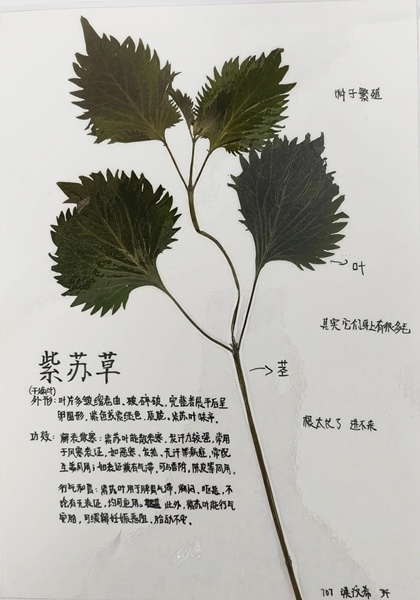 种子繁殖
叶
其实它们身上有很多毛
紫苏草
茎
(干燥叶)
根太长了 进不来
外形：叶片多皱缩卷曲、破碎，完整者展平后呈
卵圆形，紫色或紫绿色，质脆。紫苏叶味辛。
功效：解表散寒：紫苏叶能散表寒，发汗力较强，常用
于风寒表证，如恶寒、发热、无汗等病症，常配
生姜同用；如表证兼有气滞，可与香附、陈皮等同用。
行气和胃：紫苏叶用于脾胃气滞，胸闷、呕恶，不
论有无表证，均可应用。此外，紫苏叶能行气
安胎，可缓解妊娠恶阻、胎动不安。
707